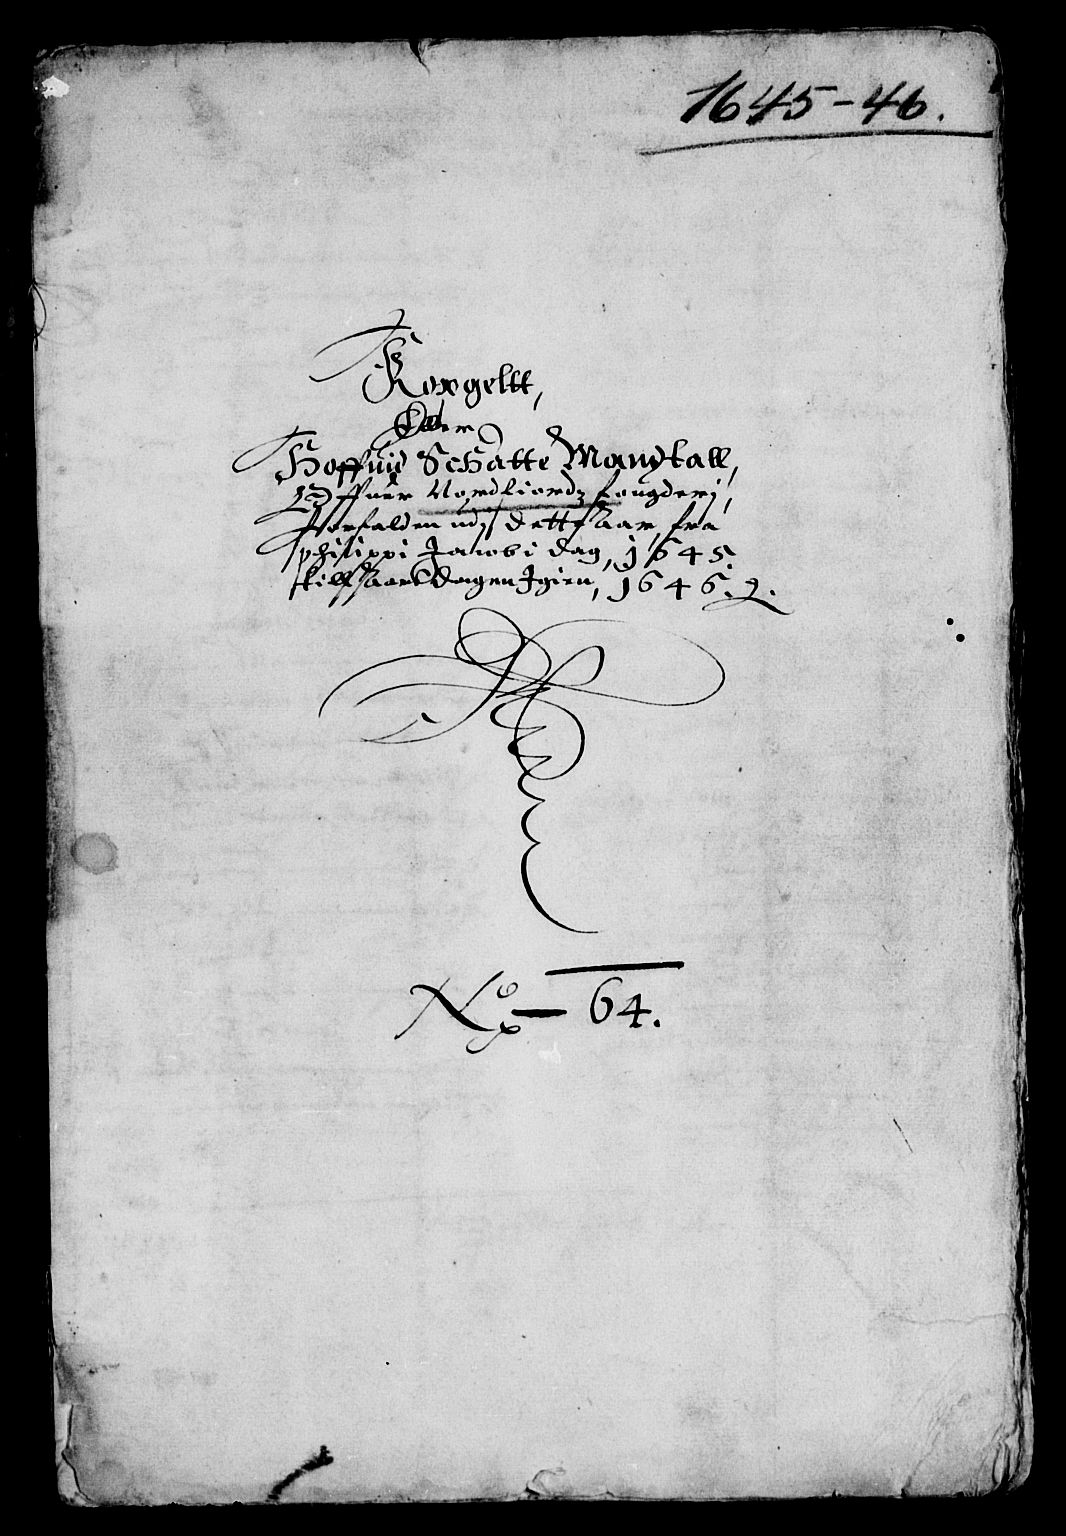 1645-46.
Kopgeltt,
Eller
Hoffuid Schatte Mandtall,
Offuer Nordfiordz fougderj,
forfalden udj dette Aar, fra
philippi Jacobi dag, 1645.
till Aarsdagen Igien, 1646.
No 64.